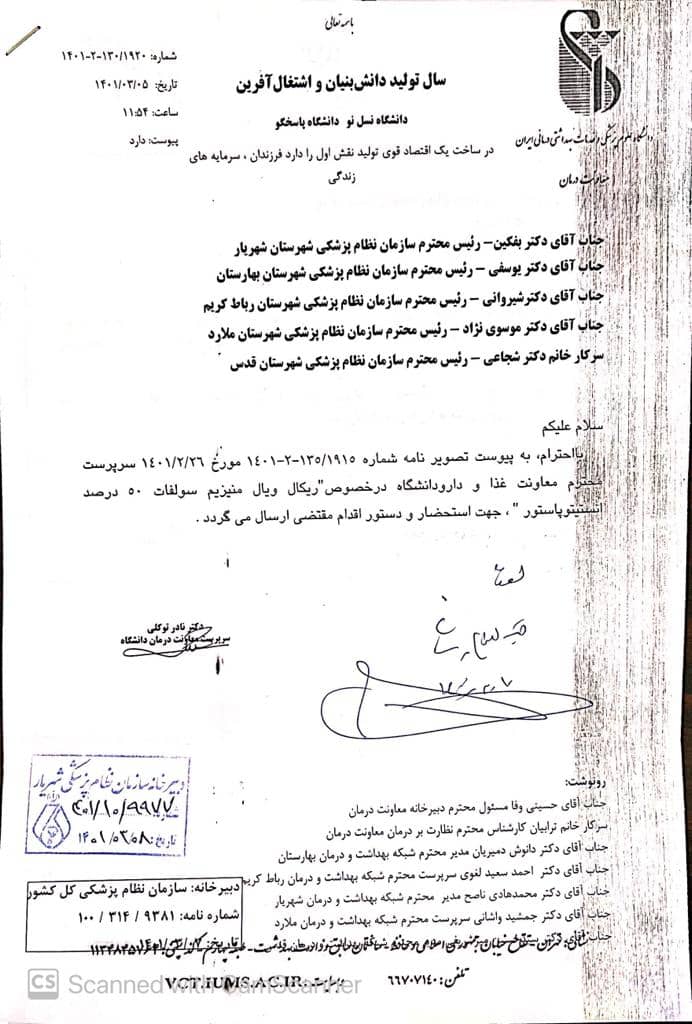 باسمه تعالی
شماره: ۱۴۰۱-۲-۱۳۰/۱۹۲۰
تاریخ: ۱۴۰۱/۰۳/۰۵
ساعت: ۱۱:۵۴
پیوست: دارد
سال تولید دانش‌بنیان و اشتغال‌آفرین
دانشگاه نسل نو دانشگاه پاسخگو
در ساخت یک اقتصاد قوی تولید نقش اول را دارد فرزندان ، سرمایه های
زندگی
دانشگاه علوم پزشکی و خدمات بهداشتی درمانی ایران
معاونت درمان
جناب آقای دکتر بفکین– رئیس محترم سازمان نظام پزشکی شهرستان شهریار
جناب آقای دکتر یوسفی – رئیس محترم سازمان نظام پزشکی شهرستان بهارستان
جناب آقای دکترشیروانی – رئیس محترم سازمان نظام پزشکی شهرستان رباط کریم
جناب آقای دکتر موسوی نژاد – رئیس محترم سازمان نظام پزشکی شهرستان ملارد
سرکار خانم دکتر شجاعی – رئیس محترم سازمان نظام پزشکی شهرستان قدس
سلام علیکم
بااحترام، به پیوست تصویر نامه شماره ۱۴۰۱-۲-۱۳۵/۱۹۱۵ مورخ ۱۴۰۱/۲/۲۶ سرپرست
محترم معاونت غذا و دارودانشگاه درخصوص"ریکال ویال منیزیم سولفات ۵۰ درصد
انستیتوپاستور " ، جهت استحضار و دستور اقدام مقتضی ارسال می گردد .
دکتر نادر توکلی
سرپرست معاونت درمان دانشگاه
دبیرخانه سازمان نظام پزشکی شهریار
شماره: ۴۰۱/۱۰/۹۹۷۷
تاریخ: ۱۴۰۱/۰۳/۰۸
رونوشت:
جناب آقای حسینی وفا مسئول محترم دبیرخانه معاونت درمان
سرکار خانم ترابیان کارشناس محترم نظارت بر درمان معاونت درمان
جناب آقای دکتر دانوش دمیریان مدیر محترم شبکه بهداشت و درمان بهارستان
جناب آقای دکتر احمد سعید لغوی سرپرست محترم شبکه بهداشت و درمان رباط کریم
جناب آقای دکتر محمدهادی ناصح مدیر محترم شبکه بهداشت و درمان شهریار
جناب آقای دکتر جمشید واشانی سرپرست محترم شبکه بهداشت و درمان ملارد
جناب آقای دکتر
دبیرخانه: سازمان نظام پزشکی کل کشور
شماره نامه: ۹۳۸۱ / ۳۱۴ / ۱۰۰
تلفن: ۶۶۷۰۷۱۴۰
وب سایت: VCT.IUMS.AC.IR
CS Scanned with CamScanner